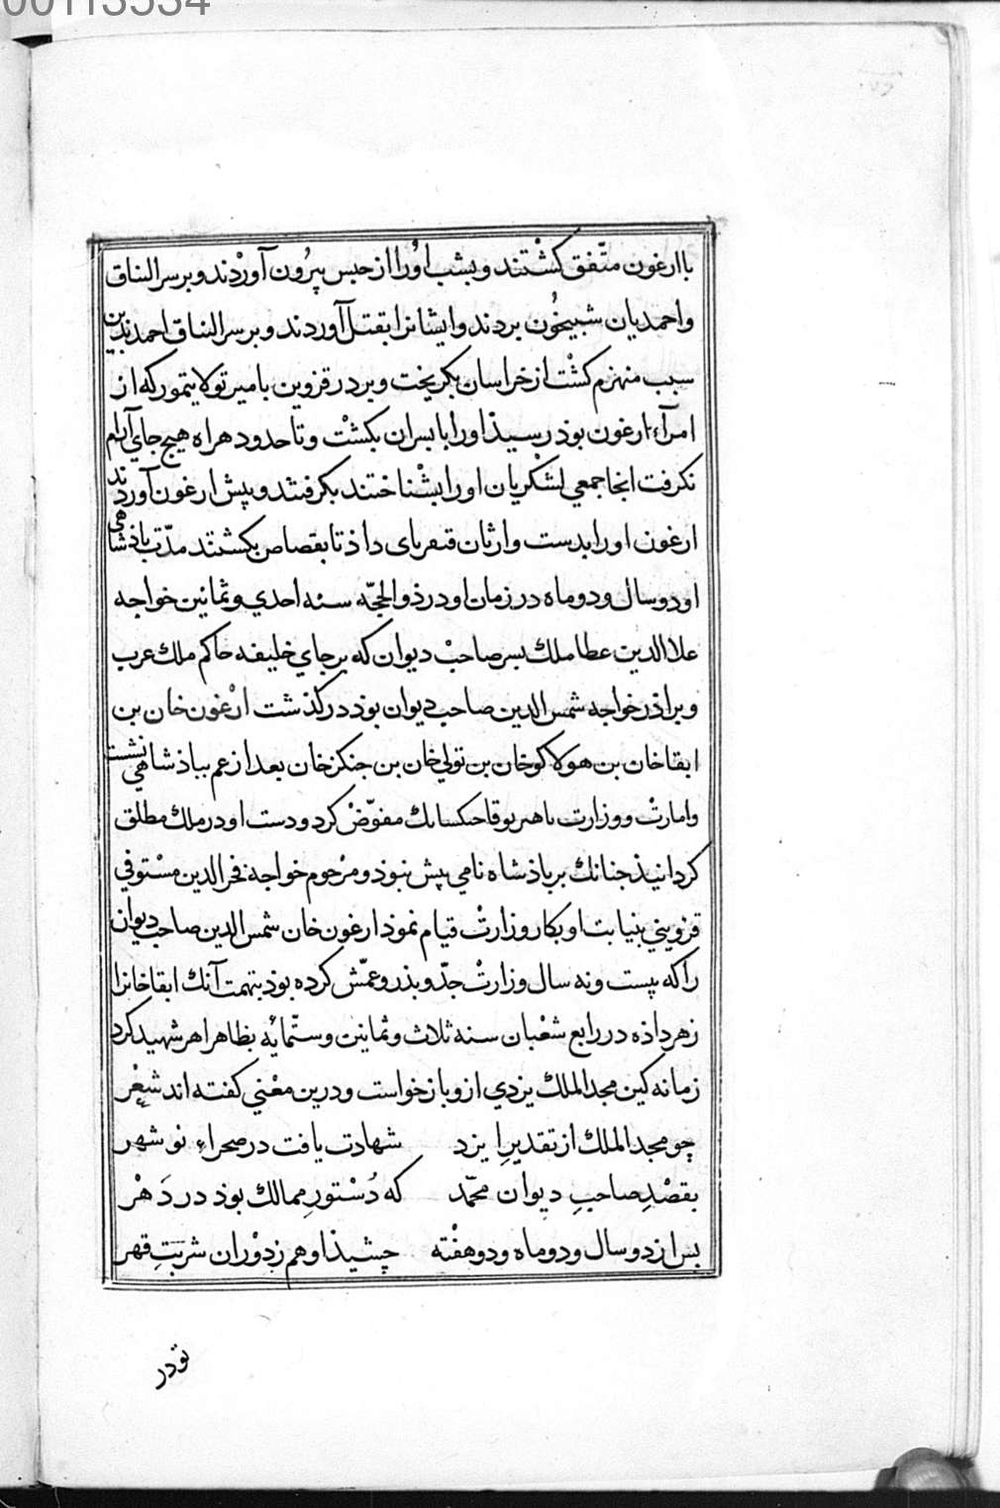 00113534
باارغون متّفق کشْتند و بشب اوْرا از حبس بیرُون آورْدند و بر سر الیناق
و احمدیان شبیخُون بردند و ایشانرا بقتل آوردند و بر سر الیناق احمد بدین
سبب منهزم کشْت از خراسان بکریخت و بر در قزوین با میر تولایتمور که از
امرآء ارغون بوذ رسیذ اورا با بسران بکشْت و تا حدود هراه هیج جای آرام
نکرفت انجا جمعی لشکریان اورا بشْناختند بکرفتند و پیش ارغون آوردند
ارغون اورا بدست وارثان قنغربای داذ تا بقصاص بکشتند مدّت باذشاهی
او دو سال و دو ماه در زمان او در ذوالحجّه سنه احدی و ثمانین خواجه
علاالدین عطا ملك بسر صاحبْ دیوان که بر جای خلیفه حاکم ملك عرب
و براذر خواجه شمس الدین صاحب دیوان بوذ در کذشت ارْغون خان بن
ابقاخان بن هولاکوخان بن تولی خان بن جنکزخان بعد از عم بباذشاهی نشست
و امارتْ و وزارت بامیر بوقا جنکسانك مفوّضْ کرد و دست او در ملك مطلق
کردانیذ جنانك بر باذشاه نامی بیش نبوذ و مرْحوم خواجه فخرالدین مسْتوفی
قزوینی بنیابت او بکار وزارتْ قیام نموذ ارغون خان شمس الدین صاحب دیوان
را که بیست و نه سال وزارتْ جدّ و بذر و عمّش کرده بوذ بتهمت آنك ابقاخانرا
زهر داذه در رابع شعْبان سنه ثلاث و ثمانین و ستّمایه بظاهر اهر شهید کرد
زمانه کین مجد الملك یزدی ازو باز خواست و درین معْنی کفته اند شعْر
چو مجد الملك از تقدیرِ ایزد شهادت یافت در صحراءِ نو شهر
بقصْدِ صاحبِ دیوان محمّد که دُسْتورِ ممالك بوذ در دَهْر
بس از دو سال و دو ماه و دو هفْته چشیذ او هم ز دوْران شربتِ قهر
تو در